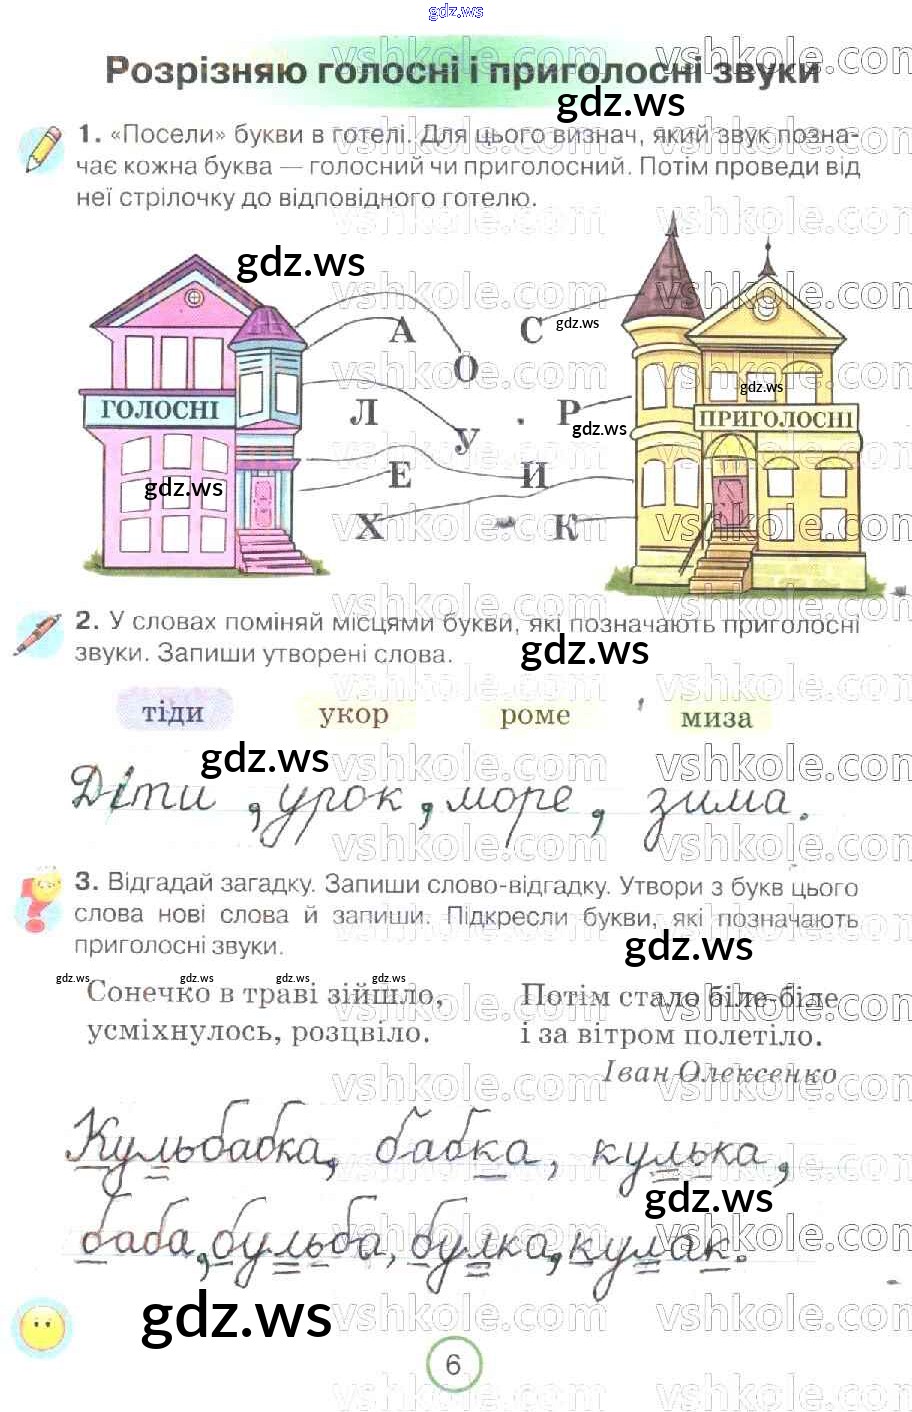 gdz.ws
Розрізняю голосні і приголосні звуки
gdz.ws
1. «Посели» букви в готелі. Для цього визнач, який звук позна-
чає кожна буква — голосний чи приголосний. Потім проведи від
неї стрілочку до відповідного готелю.
gdz.ws
vshkole.com vshkole.com
А С gdz.ws
О
gdz.ws
ГОЛОСНІ Л Р ПРИГОЛОСНІ
gdz.ws
У
gdz.ws Е И
Х К
2. У словах поміняй місцями букви, які позначають приголосні
звуки. Запиши утворені слова.
gdz.ws
тіди укор роме миза
gdz.ws
Діти, урок, море, зима.
3. Відгадай загадку. Запиши слово-відгадку. Утвори з букв цього
слова нові слова й запиши. Підкресли букви, які позначають
приголосні звуки.
gdz.ws
gdz.ws gdz.ws gdz.ws gdz.ws
Сонечко в траві зійшло, Потім стало біле-біле
усміхнулось, розцвіло. і за вітром полетіло.
Іван Олексенко
Кульбабка, бабка, кулька,
gdz.ws
баба, бульба, булка, кулак.
gdz.ws
6
vshkole.com vshkole.com